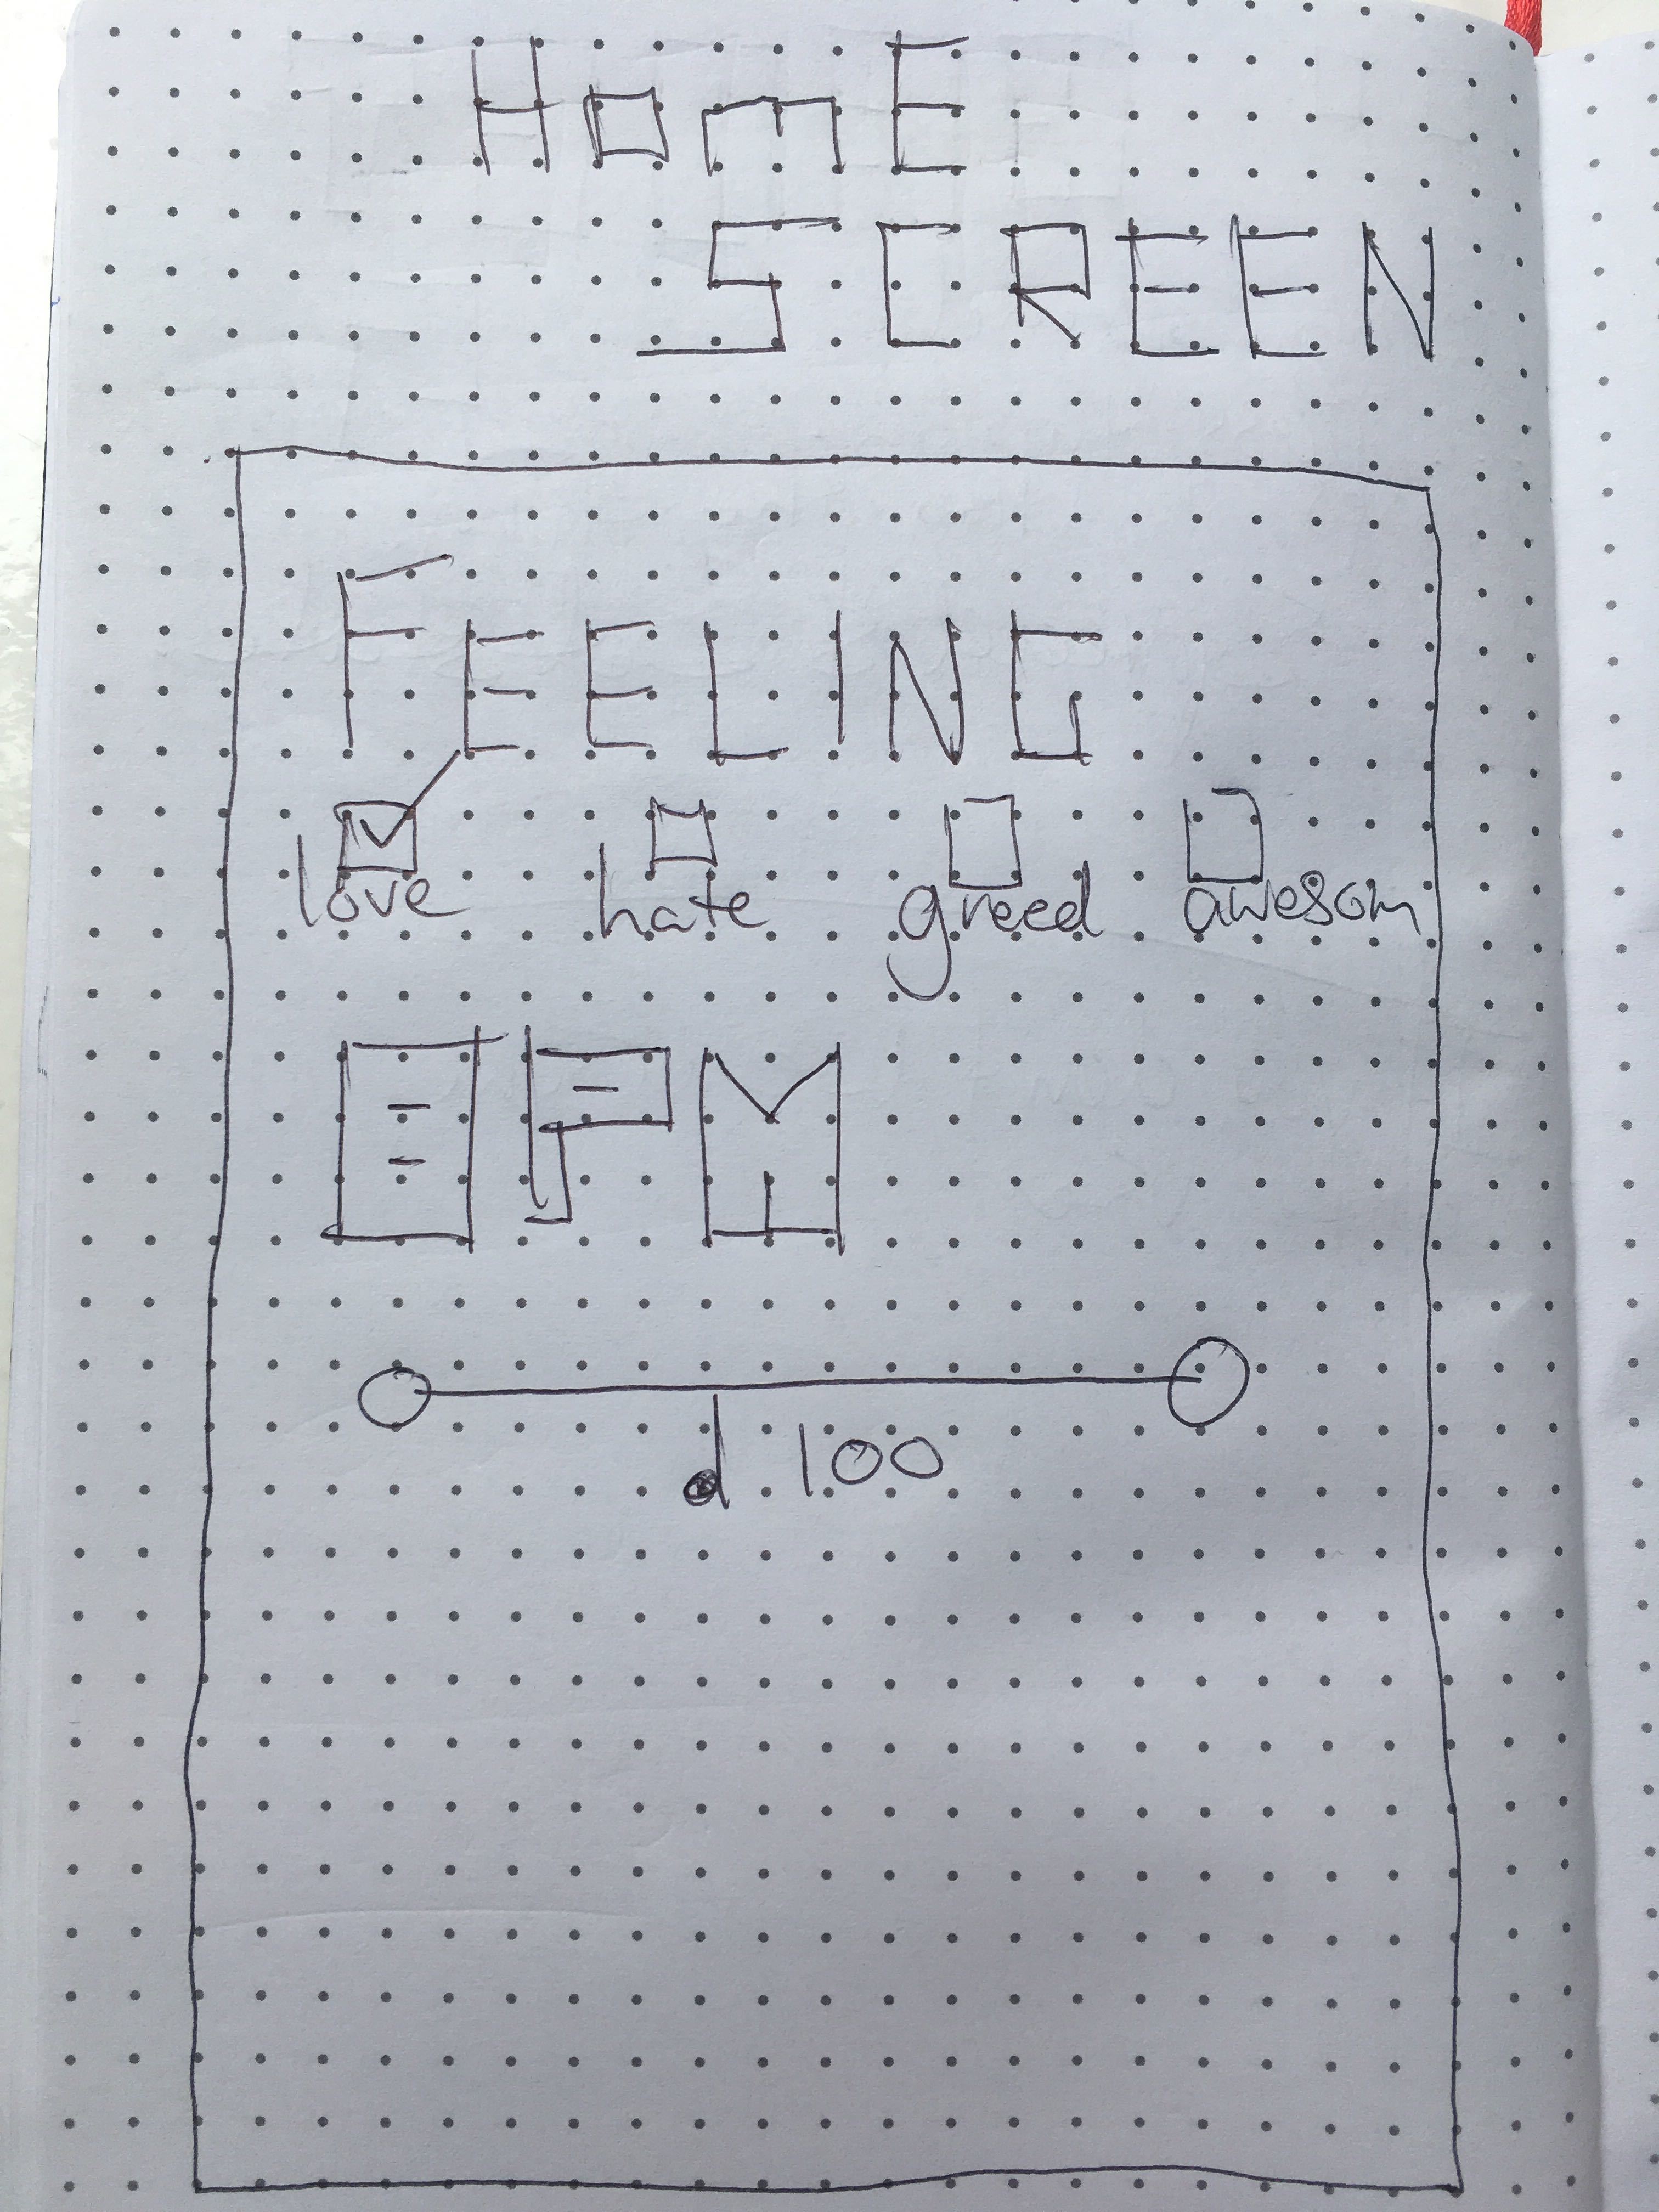 HomE
SCREEN
FEELING
love hate greed awesom
BPM
d 100